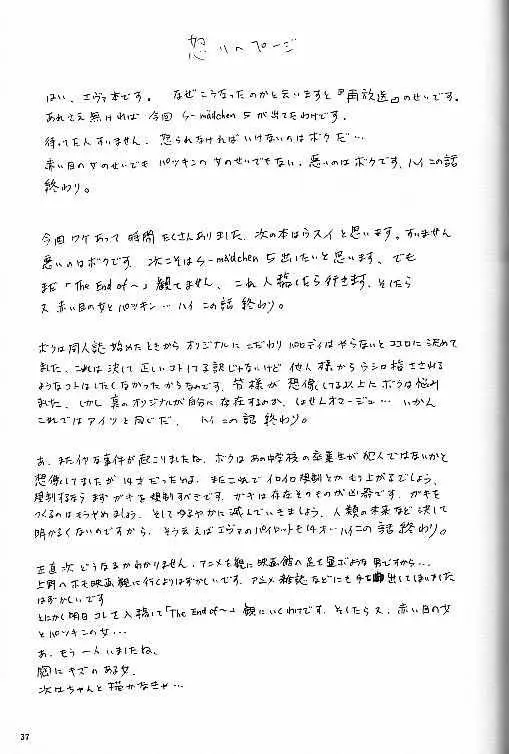 怒りのページ
はい、エヴァ本です。なぜこうなったのかと云いますと『再放送』のせいです。
あれさえ無ければ今回 S-mädchen 5 が出てたわけです。
待ってた人すいません、怒られなければいけないのはボクだ…
赤い目の女のせいでもパツキンの女のせいでもない、悪いのはボクです、ハイこの話
終わり。
今回ワケあって時間たくさんありました、次の本はウスイと思います。すいません
悪いのはボクです、次こそは S-mädchen 5 出したいと思います、でも
まだ「The End of〜」観てません、これ入稿したら行きます、そしたら
又 赤い目の女とパツキン…ハイ この話 終わり。
ボクは同人誌始めたときからオリジナルにこだわりパロディはやらないとココロに決めて
ました、これは決して正しいコトしてる訳じゃないけど他人様からうしロ指さされる
ようなコトはしたくなかったからなのです、皆様が想像してる以上にボクは悩み
ました、しかし真のオリジナルが自分に存在するのか、しょせんオマージュ…いかん
これではアイツと同じだ、ハイ この話 終わり。
あ、またイヤな事件が起こりましたね、ボクはあの中学校の卒業生が犯人ではないかと
想像してましたが14才だったとは、またこれでイロイロ規制とかもり上がるでしょう、
規制するならまずガキを規制すべきです、ガキは存在そのものが凶器です、ガキを
つくるのはもうやめましょう、そしてゆるやかに滅んでいきましょう、人類の未来など決して
明かるくないのですから、そう云えばエヴァのパイロットも14才…ハイこの話終わり。
正直次どうなるかわかりません、アニメを観に映画館へ足を運ぶような男ですから…
上野のホモ映画観に行くよりはずかしいです、アニメ雑誌などにも手を出してしまいました
はずかしいです
とにかく明日コレを入稿して「The End of〜」観にいくわけです、そしたら又、赤い目の女
とパツキンの女…
あ、もう一人いましたね、
胸にキズのある女、
次はちゃんと描かなきゃ…
37